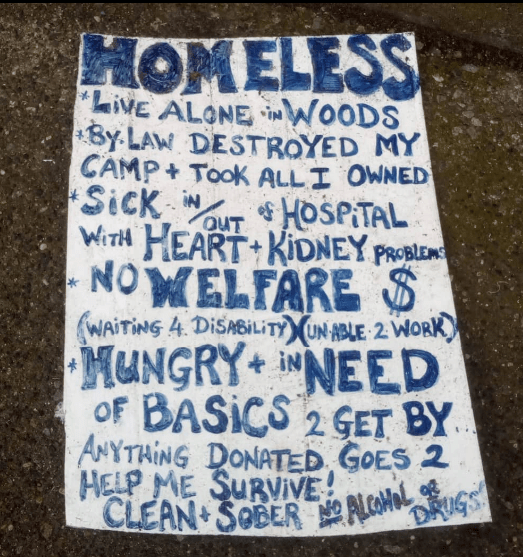 HOMELESS
*LIVE ALONE in WOODS
*BY-LAW DESTROYED MY
CAMP + TOOK ALL I OWNED
*SiCK IN/OUT of HOSPiTAL
WiTH HEART + KiDNEY PROBLEMS
*NO WELFARE $
(WAITING 4 DiSABiLiTY) (UN·ABLE 2 WORK)
*HUNGRY + iN NEED
OF BASICS 2 GET BY
ANYTHING DONATED GOES 2
HELP ME SURViVE!
CLEAN + SOBER NO ALCOHOL OR DRUGS!